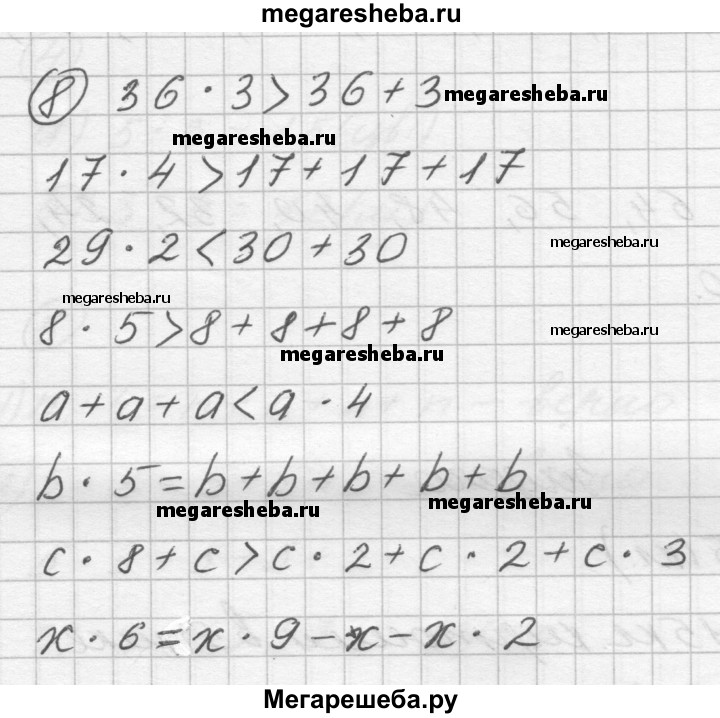 megaresheba.ru
8 36 · 3 > 36 + 3 megaresheba.ru
megaresheba.ru
17 · 4 > 17 + 17 + 17
29 · 2 < 30 + 30 megaresheba.ru
megaresheba.ru
8 · 5 > 8 + 8 + 8 + 8 megaresheba.ru
megaresheba.ru
a + a + a < a · 4
b · 5 = b + b + b + b + b
megaresheba.ru megaresheba.ru
c · 8 + c > c · 2 + c · 2 + c · 3
x · 6 = x · 9 - x - x · 2
Мегарешеба.ру